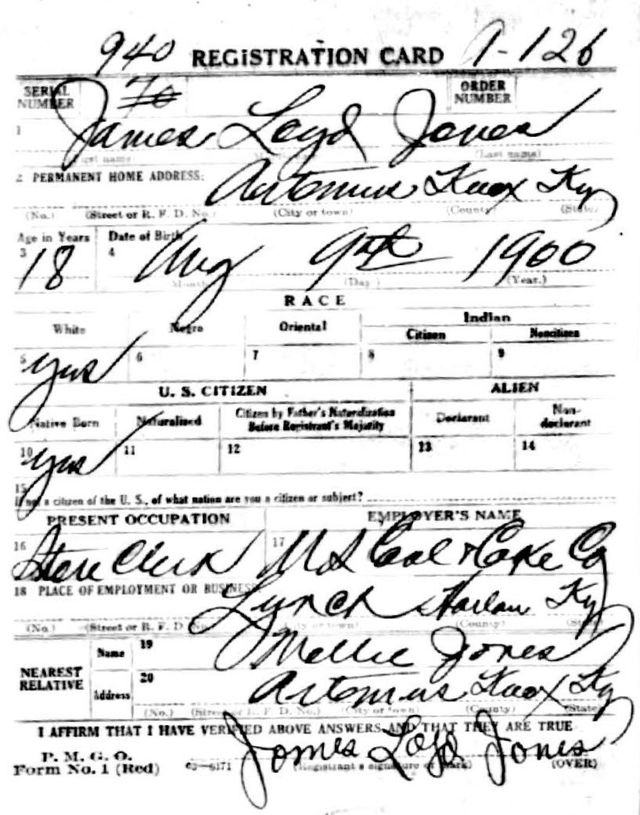 940 REGISTRATION CARD A-126
SERIAL NUMBER 70 ORDER NUMBER
1 James Loyd Jones
(First name) (Last name)
2 PERMANENT HOME ADDRESS: Artemus Knox Ky
(No.) (Street or R. F. D. No.) (City or town) (County) (State)
Age in Years Date of Birth
3 18 4 Aug 9th 1900
(Month) (Day) (Year.)
RACE
White Negro Oriental Indian
Citizen Noncitizen
5 yes 6 7 8 9
U. S. CITIZEN ALIEN
Native Born Naturalized Citizen by Father's Naturalization Before Registrant's Majority Declarant Non-declarant
10 yes 11 12 13 14
15 If not a citizen of the U. S., of what nation are you a citizen or subject?
PRESENT OCCUPATION EMPLOYER'S NAME
16 Store Clerk 17 U S Coal & Coke Co
18 PLACE OF EMPLOYMENT OR BUSINESS:
Lynch Harlan Ky
(No.) (Street or R. F. D. No.) (City or town) (County) (State)
NEAREST RELATIVE Name 19 Mellie Jones
Address 20 Artemus Knox Ky
(No.) (Street or R. F. D. No.) (City or town) (County) (State)
I AFFIRM THAT I HAVE VERIFIED ABOVE ANSWERS AND THAT THEY ARE TRUE
P. M. G. O.
Form No. 1 (Red) 03—6171 James Loyd Jones
(Registrant's signature or mark) (OVER)